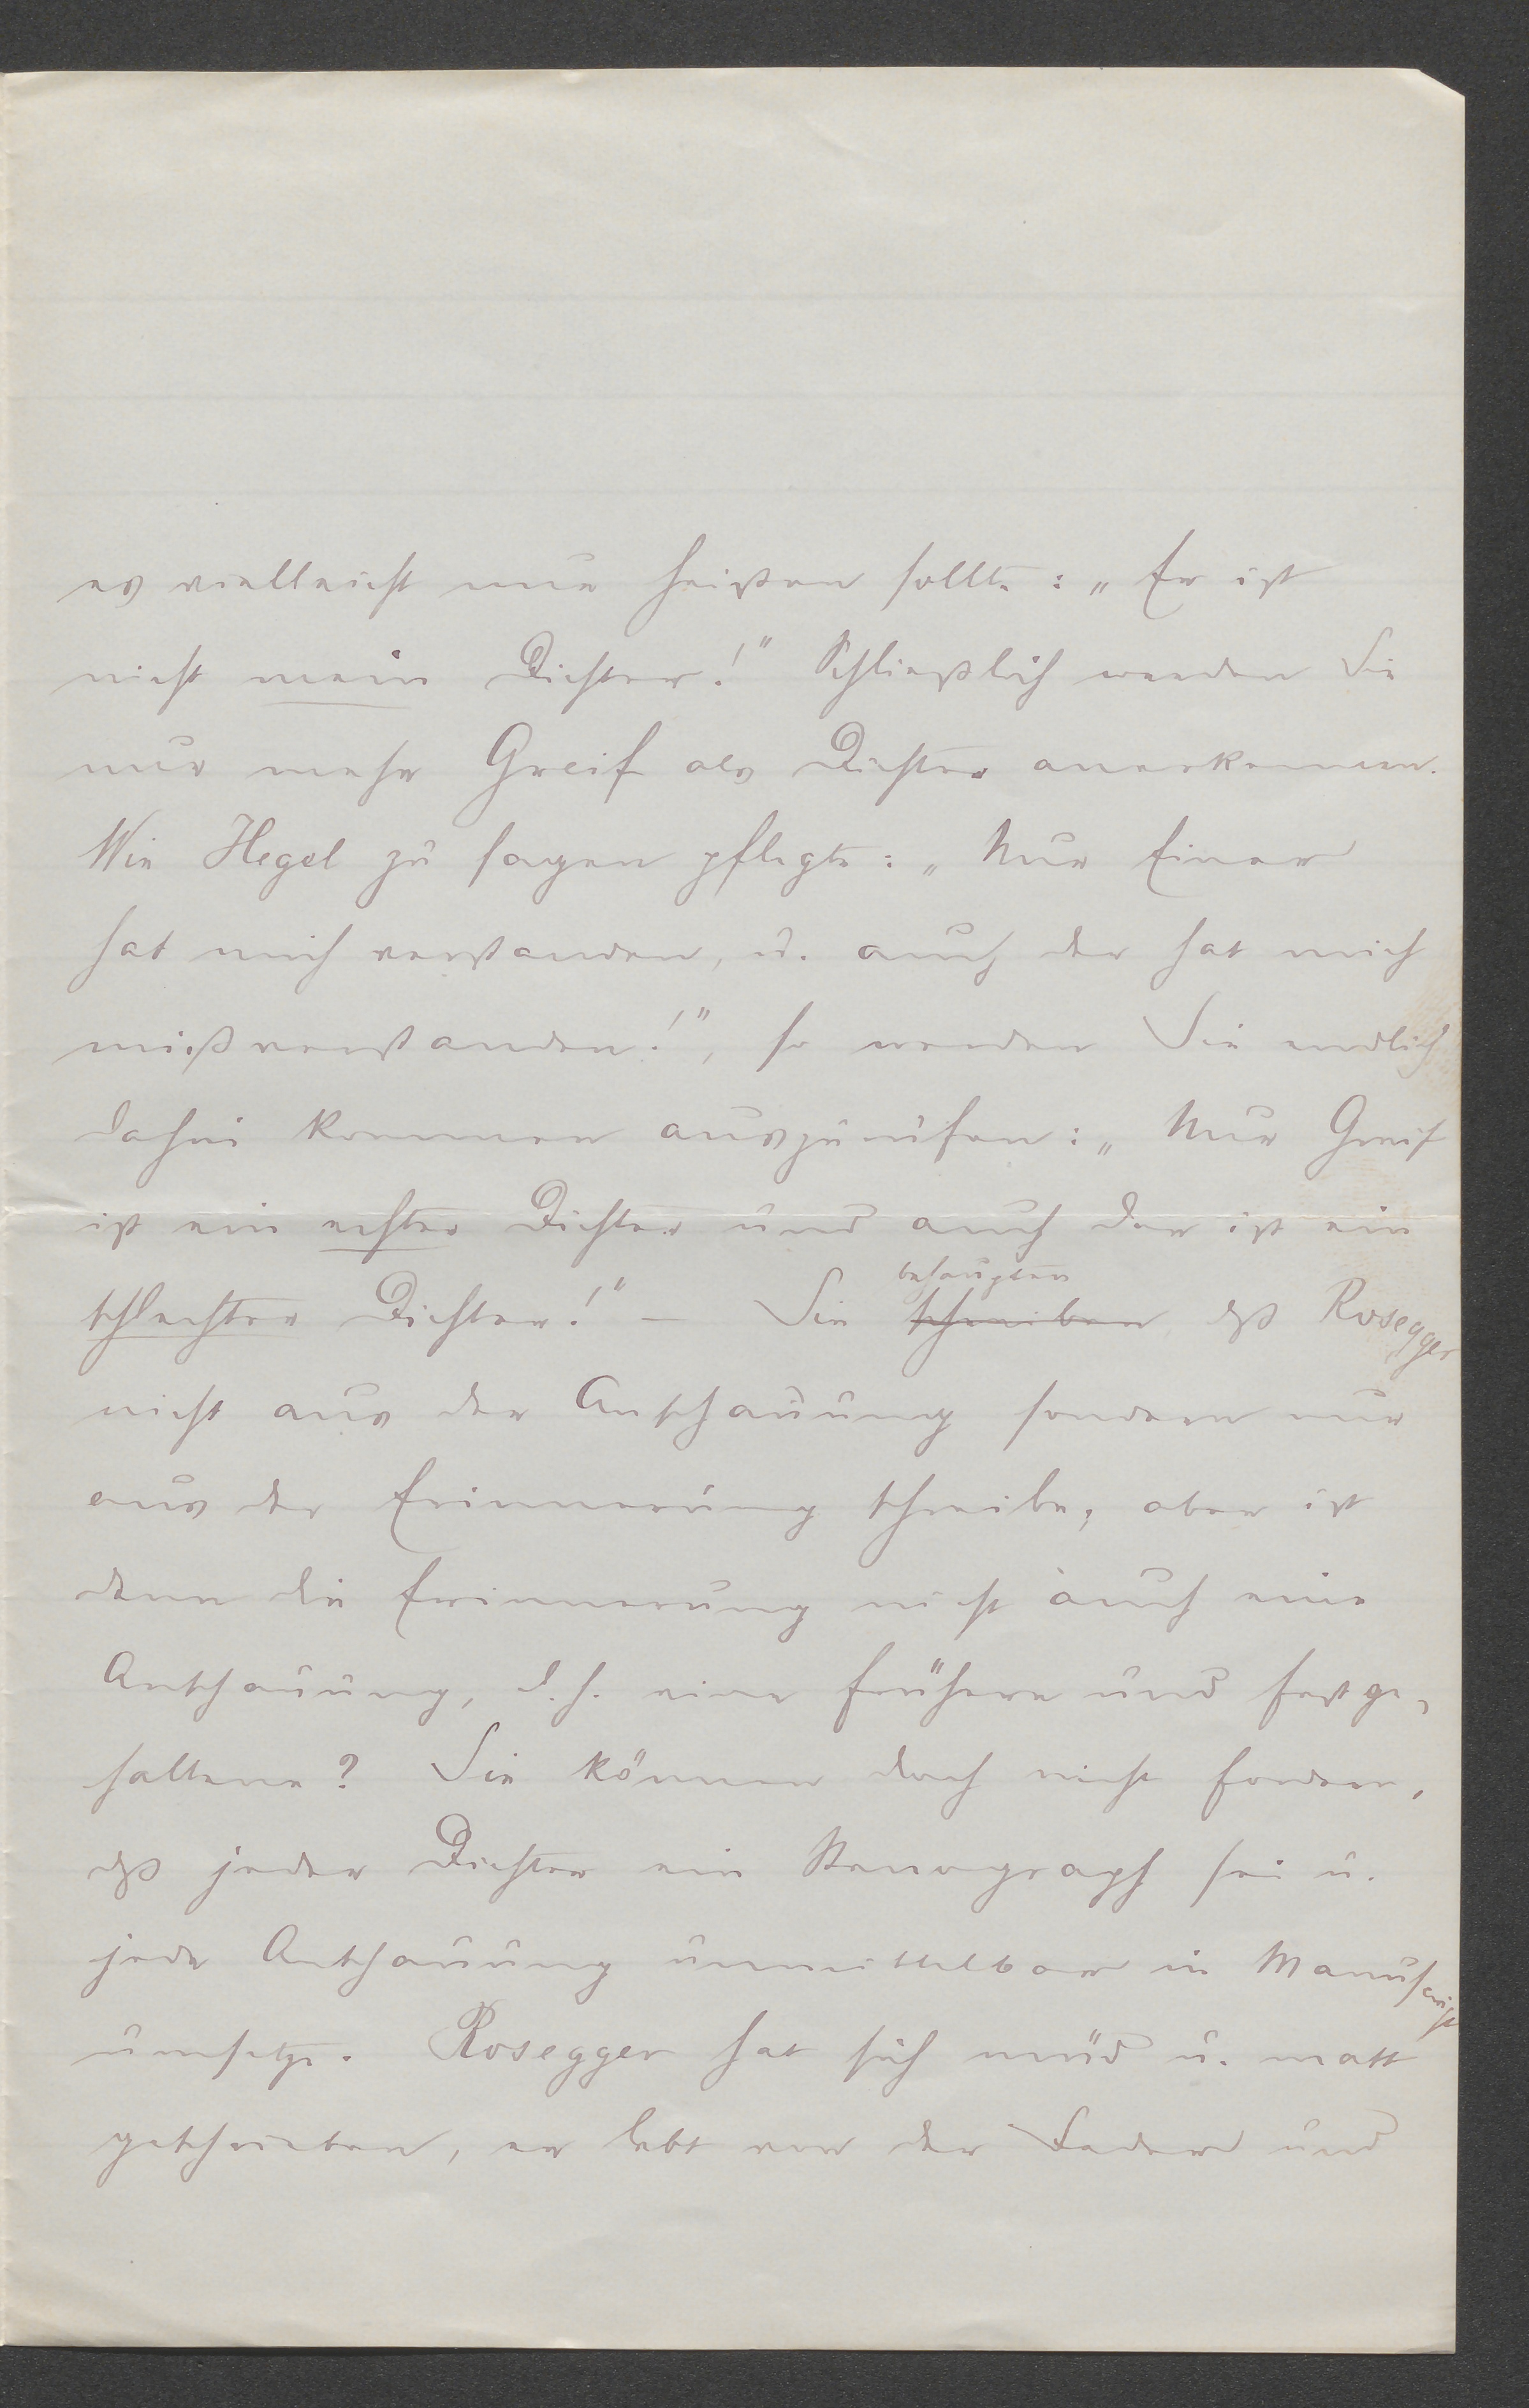 es vielleicht nur heißen sollte: „Er ist
nicht mein Dichter!" Schließlich werden Sie
nur mehr Greif als Dichter anerkennen.
Wie Hegel zu sagen pflegte: „Nur Einer
hat mich verstanden, u. auch der hat mich
mißverstanden!", so werden Sie endlich
dahin kommen auszurufen: „Nur Greif
ist ein echter Dichter und auch der ist ein
schlechter Dichter!" – Sie schreiben behaupten dß Rosegger
nicht aus der Anschauung sondern nur
aus der Erinnerung schreibe; aber ist
denn die Erinnerung nicht auch eine
Anschauung, d.h. eine frühere und festge-
haltene? Sie können doch nicht fordern,
dß jeder Dichter ein Stenograph sei u.
jede Anschauung unmittelbar in Manuscript
umsetze. Rosegger hat sich müd u. matt
geschrieben, er lebt von der Feder und